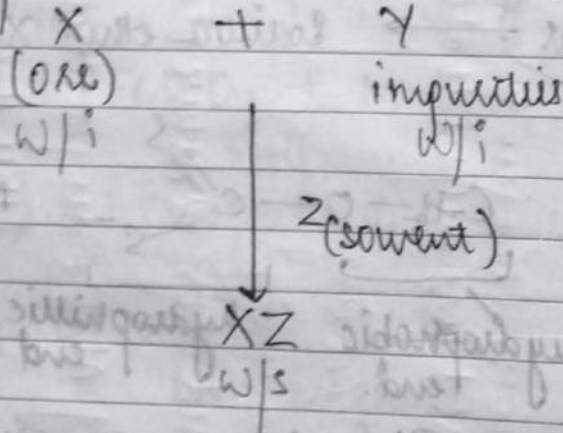 X + Y
(ore) impurities
W/i W/i
Z(solvent)
XZ
W/s